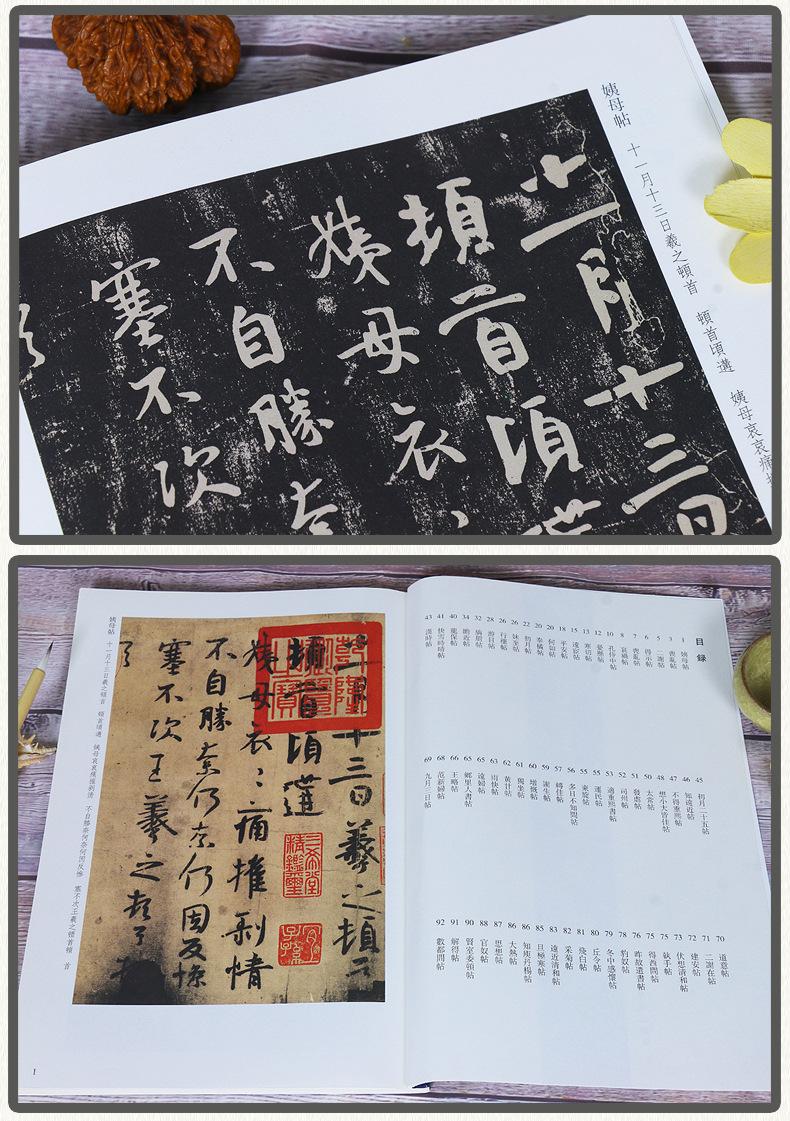 姨母帖 十一月十三日羲之頓首 頓首頃遘 姨母哀哀痛
十一月十三日
頓首頃遘
姨母哀
不自勝奈
塞不次
頓
目録
1 姨母帖
3 喪亂帖
3 二謝帖
5 得示帖
6 喪亂帖
7 哀禍帖
8 孔侍中帖
10 憂懸帖
12 寒切帖
13 遠宦帖
15 平安帖
18 何如帖
20 奉橘帖
20 初月帖
22 妹至帖
26 行穰帖
28 游目帖
32 旃罽帖
34 瞻近帖
40 龍保帖
41 快雪時晴帖
43 漢時帖
45 初月二十五帖
46 知遠近帖
47 不得重熙帖
48 想小大皆佳帖
50 太常帖
51 發瘧帖
52 司州帖
53 適重熙書帖
55 運民帖
55 東旋帖
56 多日不知問帖
57 轉佳帖
59 謝生帖
60 增慨帖
61 獨坐帖
62 黃甘帖
63 雨快帖
65 遠婦帖
65 鄉里人書帖
66 王略帖
68 范新婦帖
69 九月三日帖
70 道意帖
71 二謝在帖
72 建安帖
73 伏想清和帖
75 執手帖
75 得西問帖
76 昨故遣書帖
78 豹奴帖
79 冬中感懷帖
80 丘令帖
81 飛白帖
82 采菊帖
83 遠近清和帖
85 旦極寒帖
86 知庾丹楊帖
86 大熱帖
87 思想帖
88 官奴帖
90 賢室委頓帖
91 解得帖
92 數都問帖
十一月十三日羲之頓
頓首頃遘
姨母哀〻痛摧剥情
不自勝奈何奈何因反慘
塞不次王羲之頓首
乾隆御覽之寶
三希堂精鑑璽
宜子孫
姨母帖 十一月十三日羲之頓首 頓首頃遘 姨母哀哀痛摧剥情 不自勝奈何奈何因反慘 塞不次王羲之頓首頓 首
1